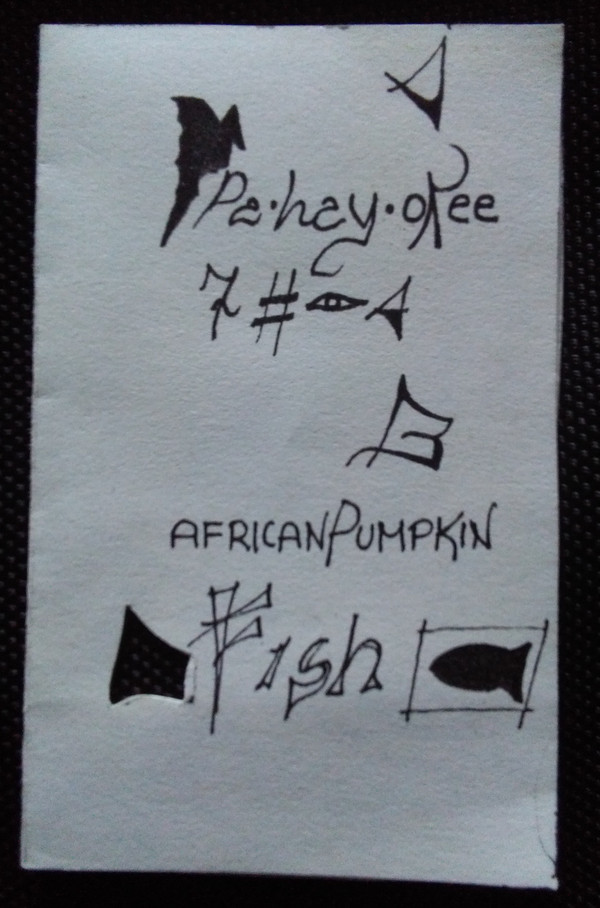 Pa·hay·oKee
7 #
B
AFRICANPUMPKIN
Fish